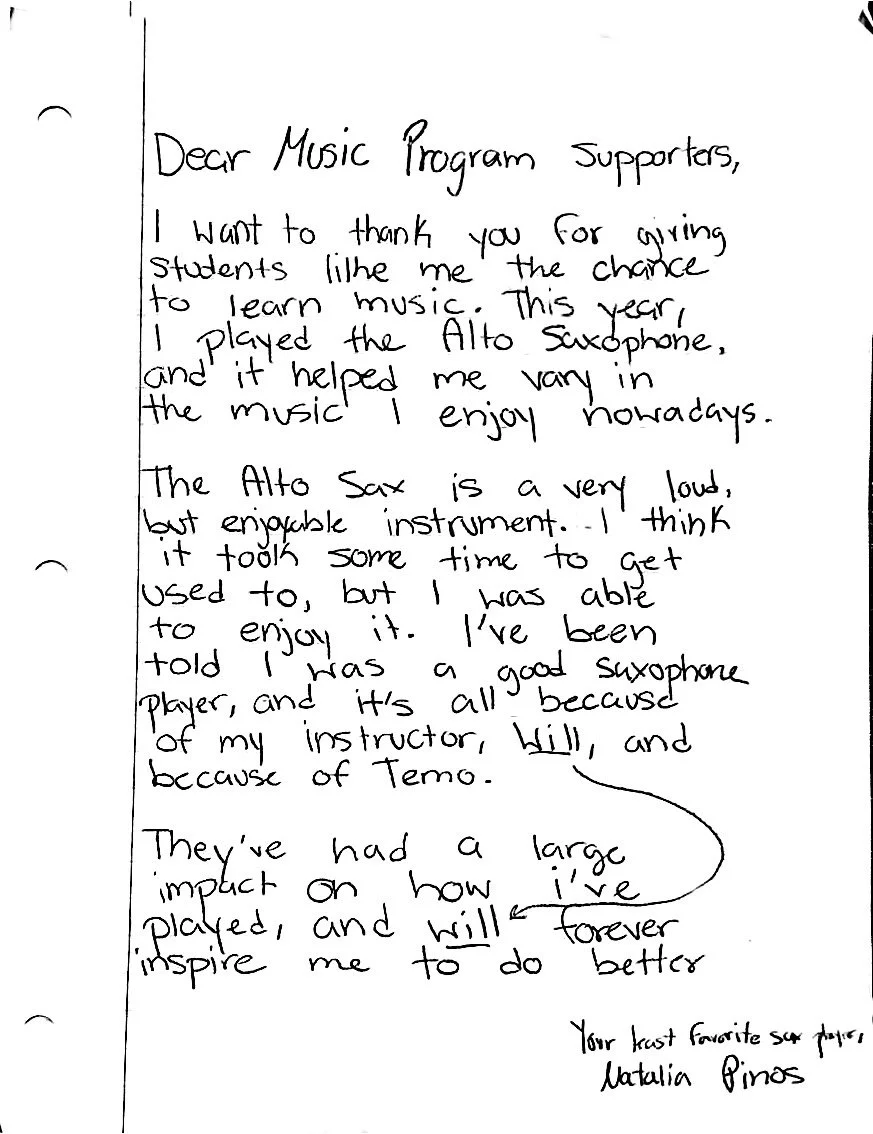 Dear Music Program Supporters,
I want to thank you for giving
students lihe me the chance
to learn music. This year,
I played the Alto Saxophone,
and it helped me vary in
the music I enjoy nowadays.
The Alto Sax is a very loud,
but enjoyable instrument. I think
it took some time to get
used to, but I was able
to enjoy it. I've been
told I was a good saxophone
player, and it's all because
of my instructor, Will, and
because of Temo.
They've had a large
impact on how i've
played, and will forever
inspire me to do better
Your least favorite sax player,
Natalia Pinos